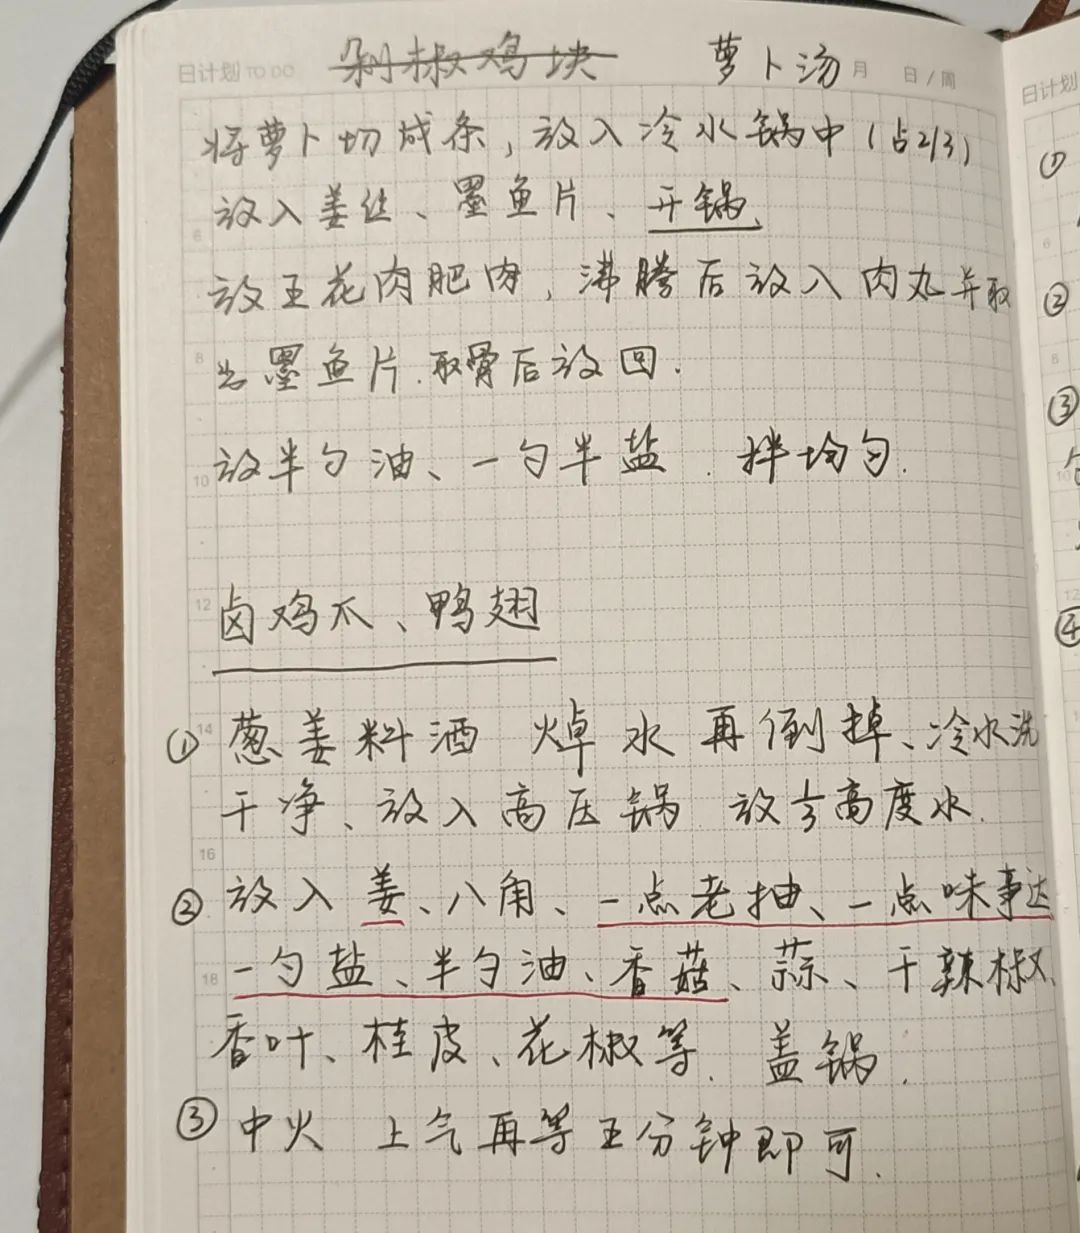 日计划 TO DO 剁椒鸡块 萝卜汤 月 日/周
将萝卜切成条，放入冷水锅中（占2/3）
放入姜丝、墨鱼片、开锅、
放五花肉肥肉，沸腾后放入肉丸并取
出墨鱼片.取骨后放回.
放半勺油、一勺半盐.拌均匀.
卤鸡爪、鸭翅
① 葱姜料酒 焯水再倒掉、冷水洗
干净、放入高压锅 放⅓高度水.
② 放入姜、八角、一点老抽、一点味事达
一勺盐、半勺油、香菇、蒜、干辣椒、
香叶、桂皮、花椒等.盖锅.
③ 中火 上气再等五分钟即可.
6
8
10
12
14
16
18
日计划
①
②
③
④
6
8
10
12